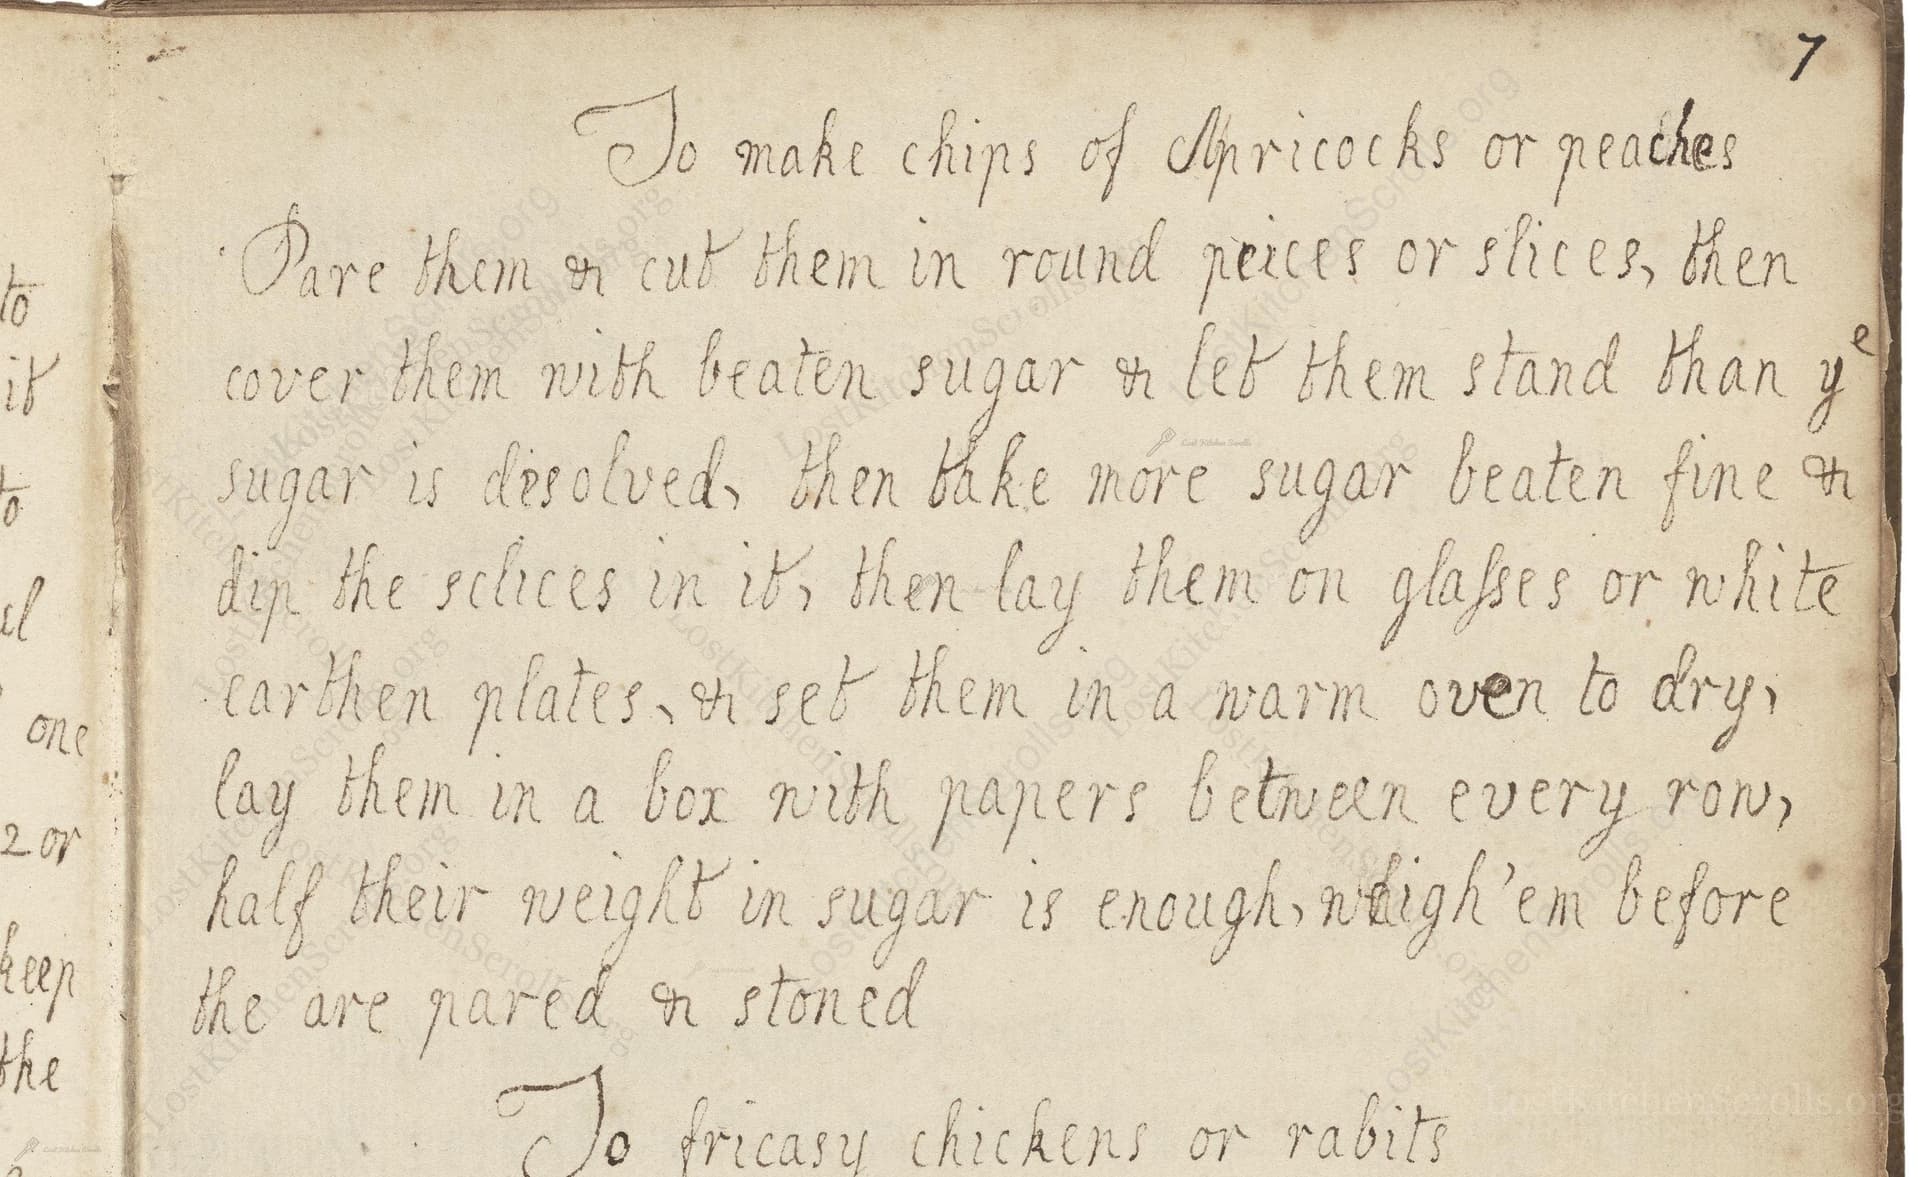 7
To make chips of Apricocks or peaches
Pare them & cut them in round peices or slices, then
cover them with beaten sugar & let them stand than yᵉ
sugar is disolved, then take more sugar beaten fine &
dip the sclices in it, then lay them on glaſses or white
earthen plates, & set them in a warm oven to dry,
lay them in a box with papers between every row,
half their weight in sugar is enough, weigh'em before
the are pared & stoned
To fricasy chickens or rabits
to
it
to
one
2 or
keep
the
LostKitchenScrolls.org